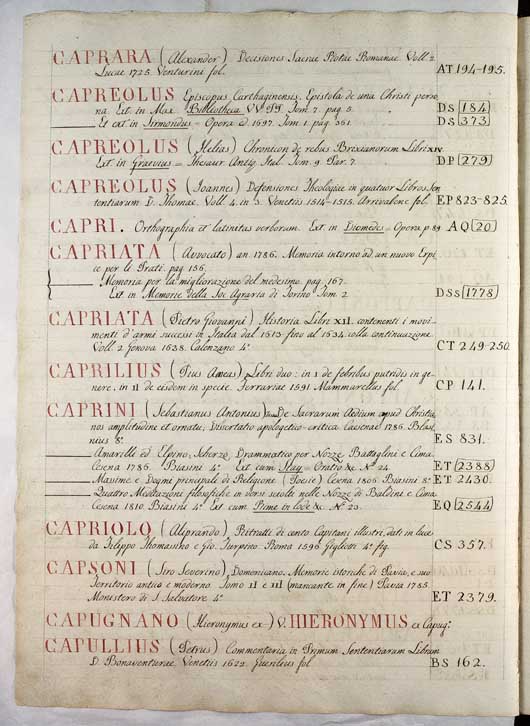 CAPRARA (Alexander) Decisiones Sacrae Rotae Romanae Voll. 2
Lucae 1725. Venturini fol. AT 194-195.
CAPREOLUS Episcopus Carthaginensis. Epistola de una Christi perso
na. Ext. in Max. Bibliotheca VV. PP. Tom. 7. pag. 5. DS 184
Et ext. in Sirmondus = Opera ed. 1697. Tom. 1. pag. 361. DS 373
CAPREOLUS (Helias) Chronicon de rebus Brexianorum Libri XIV.
Ext. in Graevius = Thesaur. Antiq. Ital. Tom. 9. Par. 7. DP 279
CAPREOLUS (Joannes) Defensiones Theologicae in quatuor Libros Sen
tentiarum D. Thomae. Voll. 4. in 3. Venetiis 1514-1515. Arrivabene fol. EP 823-825.
CAPRI. Orthographia et latinitas verborum. Ext. in Diomedes = Opera p. 89 AQ 20
CAPRIATA (Avvocato) an. 1786. Memoria intorno ad un nuovo Erpi
ce per li Prati. pag. 156.
Memoria per la migliorazione del medesimo. pag. 167.
Ext. in Memorie della Soc. Agraria di Torino Tom. 2 DSS 1778
CAPRIATA (Pietro Giovanni) Historia Libri XII. contenenti i movi
menti d'armi successi in Italia dal 1613 fino al 1634. colla continuazione
Voll. 2. Genova 1638. Calenzano 4° CT 249-250.
CAPRILIUS (Pius Aeneas) Libri duo: in I de febribus putridis in ge
nere, in II de eisdem in specie. Ferrariae 1591. Mammarellus fol. CP 141.
CAPRINI (Sebastianus Antonius) De Sacrarum Aedium apud Christia
nos amplitudine et ornatu, Dissertatio apologetico-critica Caesenae 1786. Blasi
nius 8° ES 831.
Amarille ed Elpino, Scherzo Drammatico per Nozze Battaglini e Cima
Cesena 1786. Biasini 4° Ext. cum Oratio &c N° 24. ET 2388
Massime e Dogme principali di Religione (Poesie) Cesena 1806. Biasini 8° ET 2430.
Quattro Meditazioni filosofiche in versi sciolti nelle Nozze di Baldini e Cima
Cesena 1810. Biasini 4° Ext. cum Prime in lode &c N° 23. EQ 2544
CAPRIOLO (Aliprando) Ritratti di cento Capitani illustri, dati in luce
da Filippo Thomassino e Gio. Turpino. Roma 1596. Gigliotti 4° fig. CS 357.
CAPSONI (Siro Severino) Domenicano. Memorie istoriche di Pavia, e suo
Territorio antico e moderno. Tomo II e III (mancante in fine) Pavia 1785.
Monistero di S. Salvatore 4° ET 2379.
CAPUGNANO (Hieronymus ex) V. HIERONYMUS ex Capug.
CAPULLIUS (Petrus) Commentaria in Primum Sententiarum Librum
D. Bonaventurae. Venetiis 1622. Guerilius fol. BS 162.